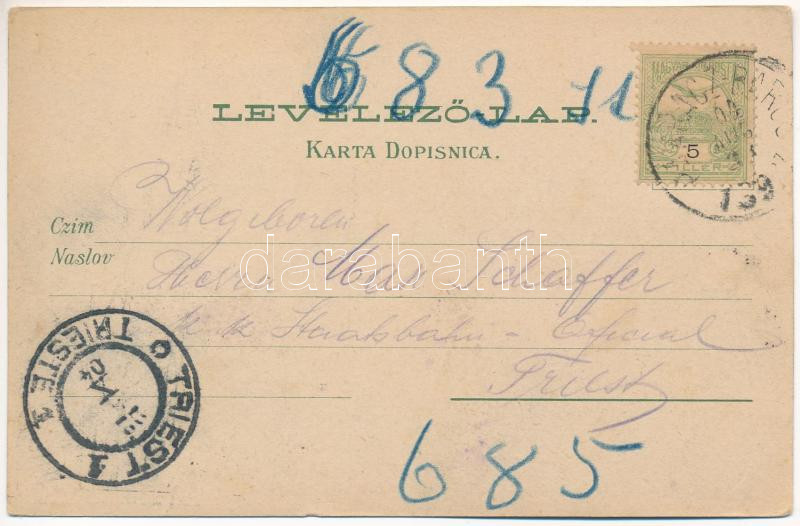 6 8 3 11
LEVELEZŐ-LAP.
KARTA DOPISNICA.
MAGYAR KIR. POSTA
5
FILLÉR
Czim
Naslov
Wolgeboren
Herrn Max Schaffer
k. k. Staatsbahn - Official
Triest
TRIEST 1 TRIESTE 1
6 8 5
darabanth